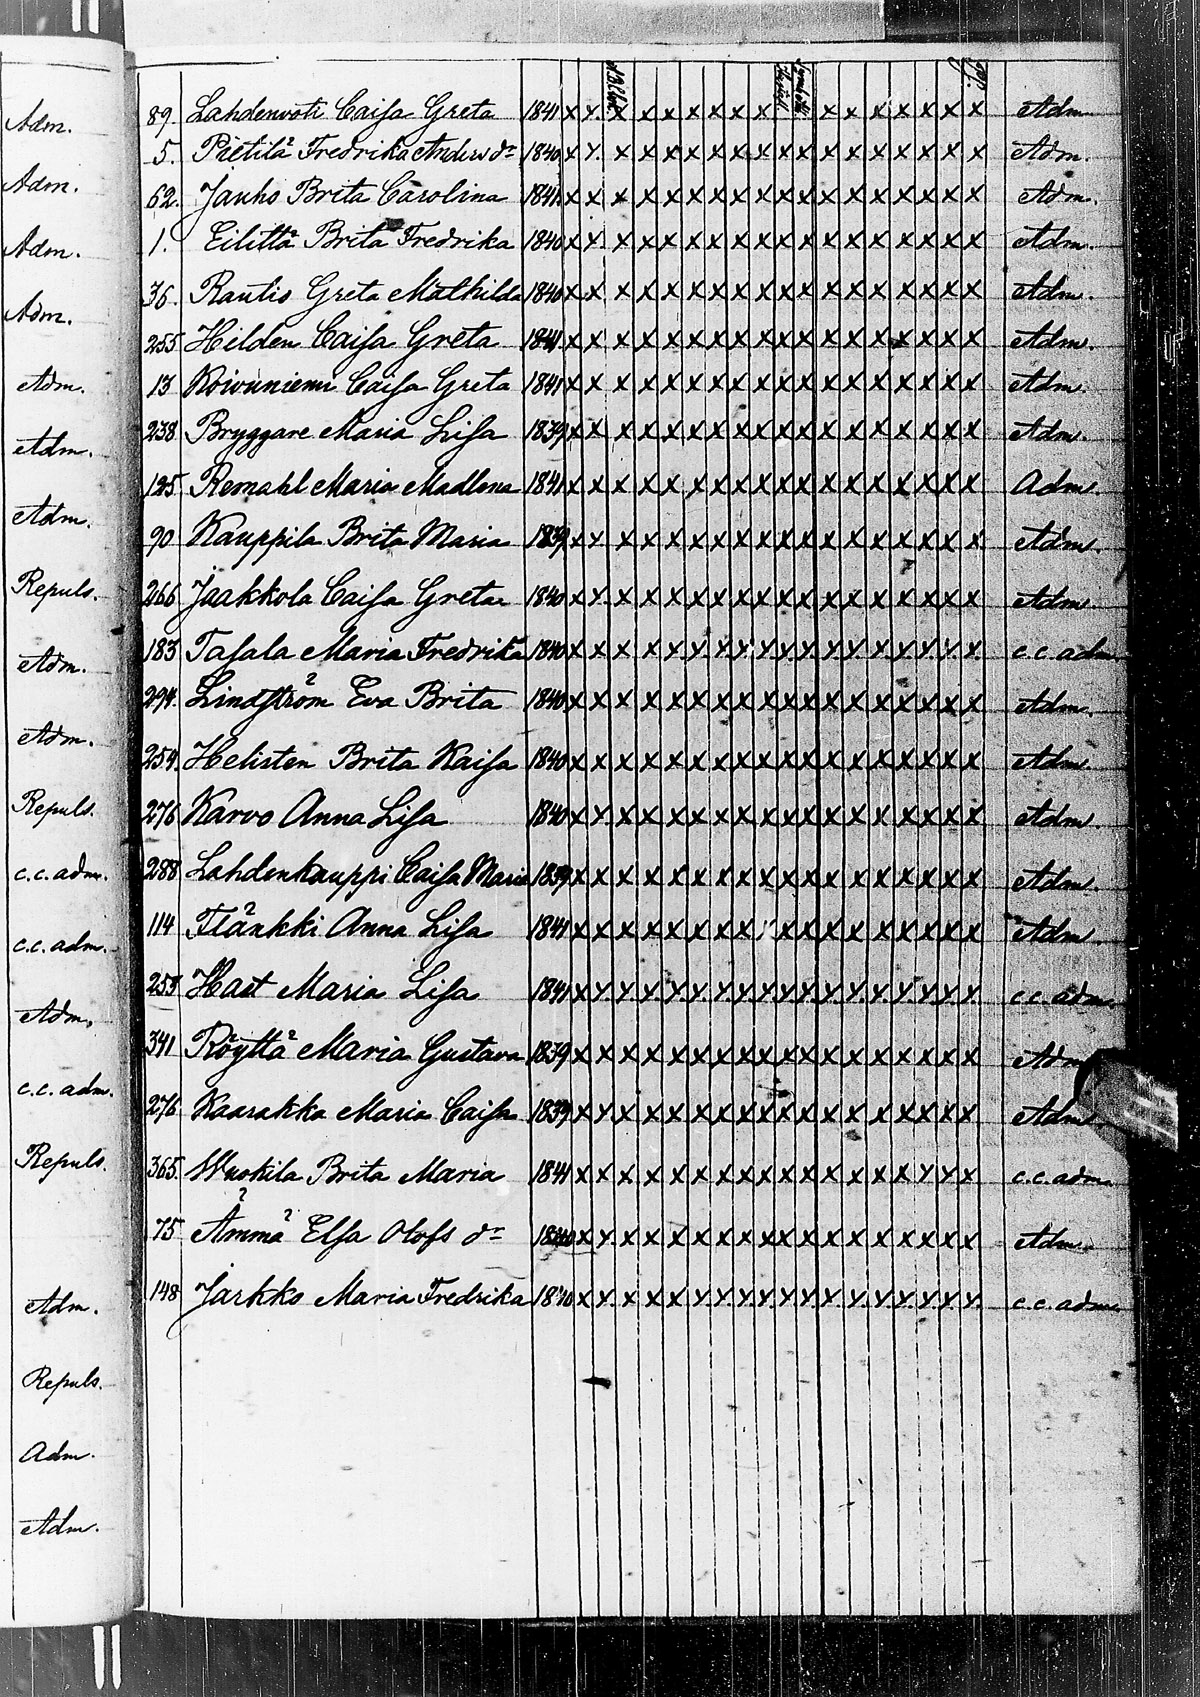 Adm.
Adm.
Adm.
Adm.
Adm.
Adm.
Adm.
Repuls.
Adm.
Adm.
Repuls.
c.c. adm.
c.c. adm.
Adm.
c.c. adm.
Repuls.
Adm.
Repuls.
Adm.
Adm.
89. Lahdenvoti Caisa Greta 1841 x y. x x x x x x x x x x x x x x Adm.
5. Pietilä Fredrika Anders dr 1840 x y. x x x x x x x x x x x x x x x Adm.
62. Jauho Brita Carolina 1841 x x x x x x x x x x x x x x x x x Adm.
1. Eilittä Brita Fredrika 1840 x y. x x x x x x x x x x x x x x x Adm.
36. Rautio Greta Mathilda 1840 x x x x x x x x x x x x x x x x x Adm.
255 Hilden Caisa Greta 1841 x x x x x x x x x x x x x x x x x Adm.
13 Koivuniemi Caisa Greta 1841 x x x x x x x x x x x x x x x x x Adm.
238 Bryggare Maria Lisa 1839 x x x x x x x x x x x x x x x x x Adm.
125 Remahl Maria Madlena 1841 x x x x x x x x x x x x x x x x x Adm.
90 Kauppila Brita Maria 1839 x y. x x x x x x x x x x x x x x x Adm.
266 Jaakkola Caisa Greta 1840 x y. x x x x x x x x x x x x x x x Adm.
183 Tasala Maria Fredrika 1840 x x x x x y. y. y. y. y. y. y. y. y. y. y. y. x c.c. adm.
294. Lindström Eva Brita 1840 x x x x x x x x x x x x x x x x x Adm.
254. Helisten Brita Kaisa 1840 x x x x x x x x x x x x x x x x x Adm.
276 Karvo Anna Lisa 1840 x y. x x x x x x x x x x x x x x x Adm.
288 Lahdenkauppi Caisa Maria 1839 x x x x x x x x x x x x x x x x x Adm.
114 Flänkki Anna Lisa 1841 x x x x x x x x x x x x x x x x x Adm.
253 Hast Maria Lisa 1841 x y. y. y. y. y. y. y. y. y. y. y. y. y. y. y. y. y. c.c. adm.
341 Röyttä Maria Gustava 1839 x x x x x x x x x x x x x x x x x Adm.
276 Kaarakka Maria Caisa 1839 x y. x x x x x x x x x x x x x x x Adm.
365. Wuokila Brita Maria 1841 x x x x x x x x x x x x x x x y y x c.c. adm.
75 Ämmä Elsa Olofs dr 1840 x y. x x x x x x x x x x x x x x x Adm.
148 Jarkko Maria Fredrika 1840 x y. x x x y. y. y. y. y. y. y. y. y. y. y. y. y. c.c. adm.